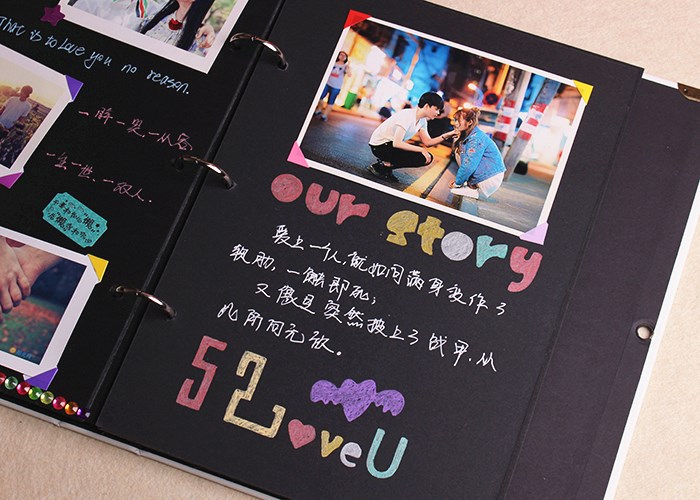 That is to love you no reason.
一生一世、一双人.
our story
爱上一人,就如同满身变作了
软肋,一触即死;
又像是突然披上了战甲.从
此所向无敌。
52
LoveU